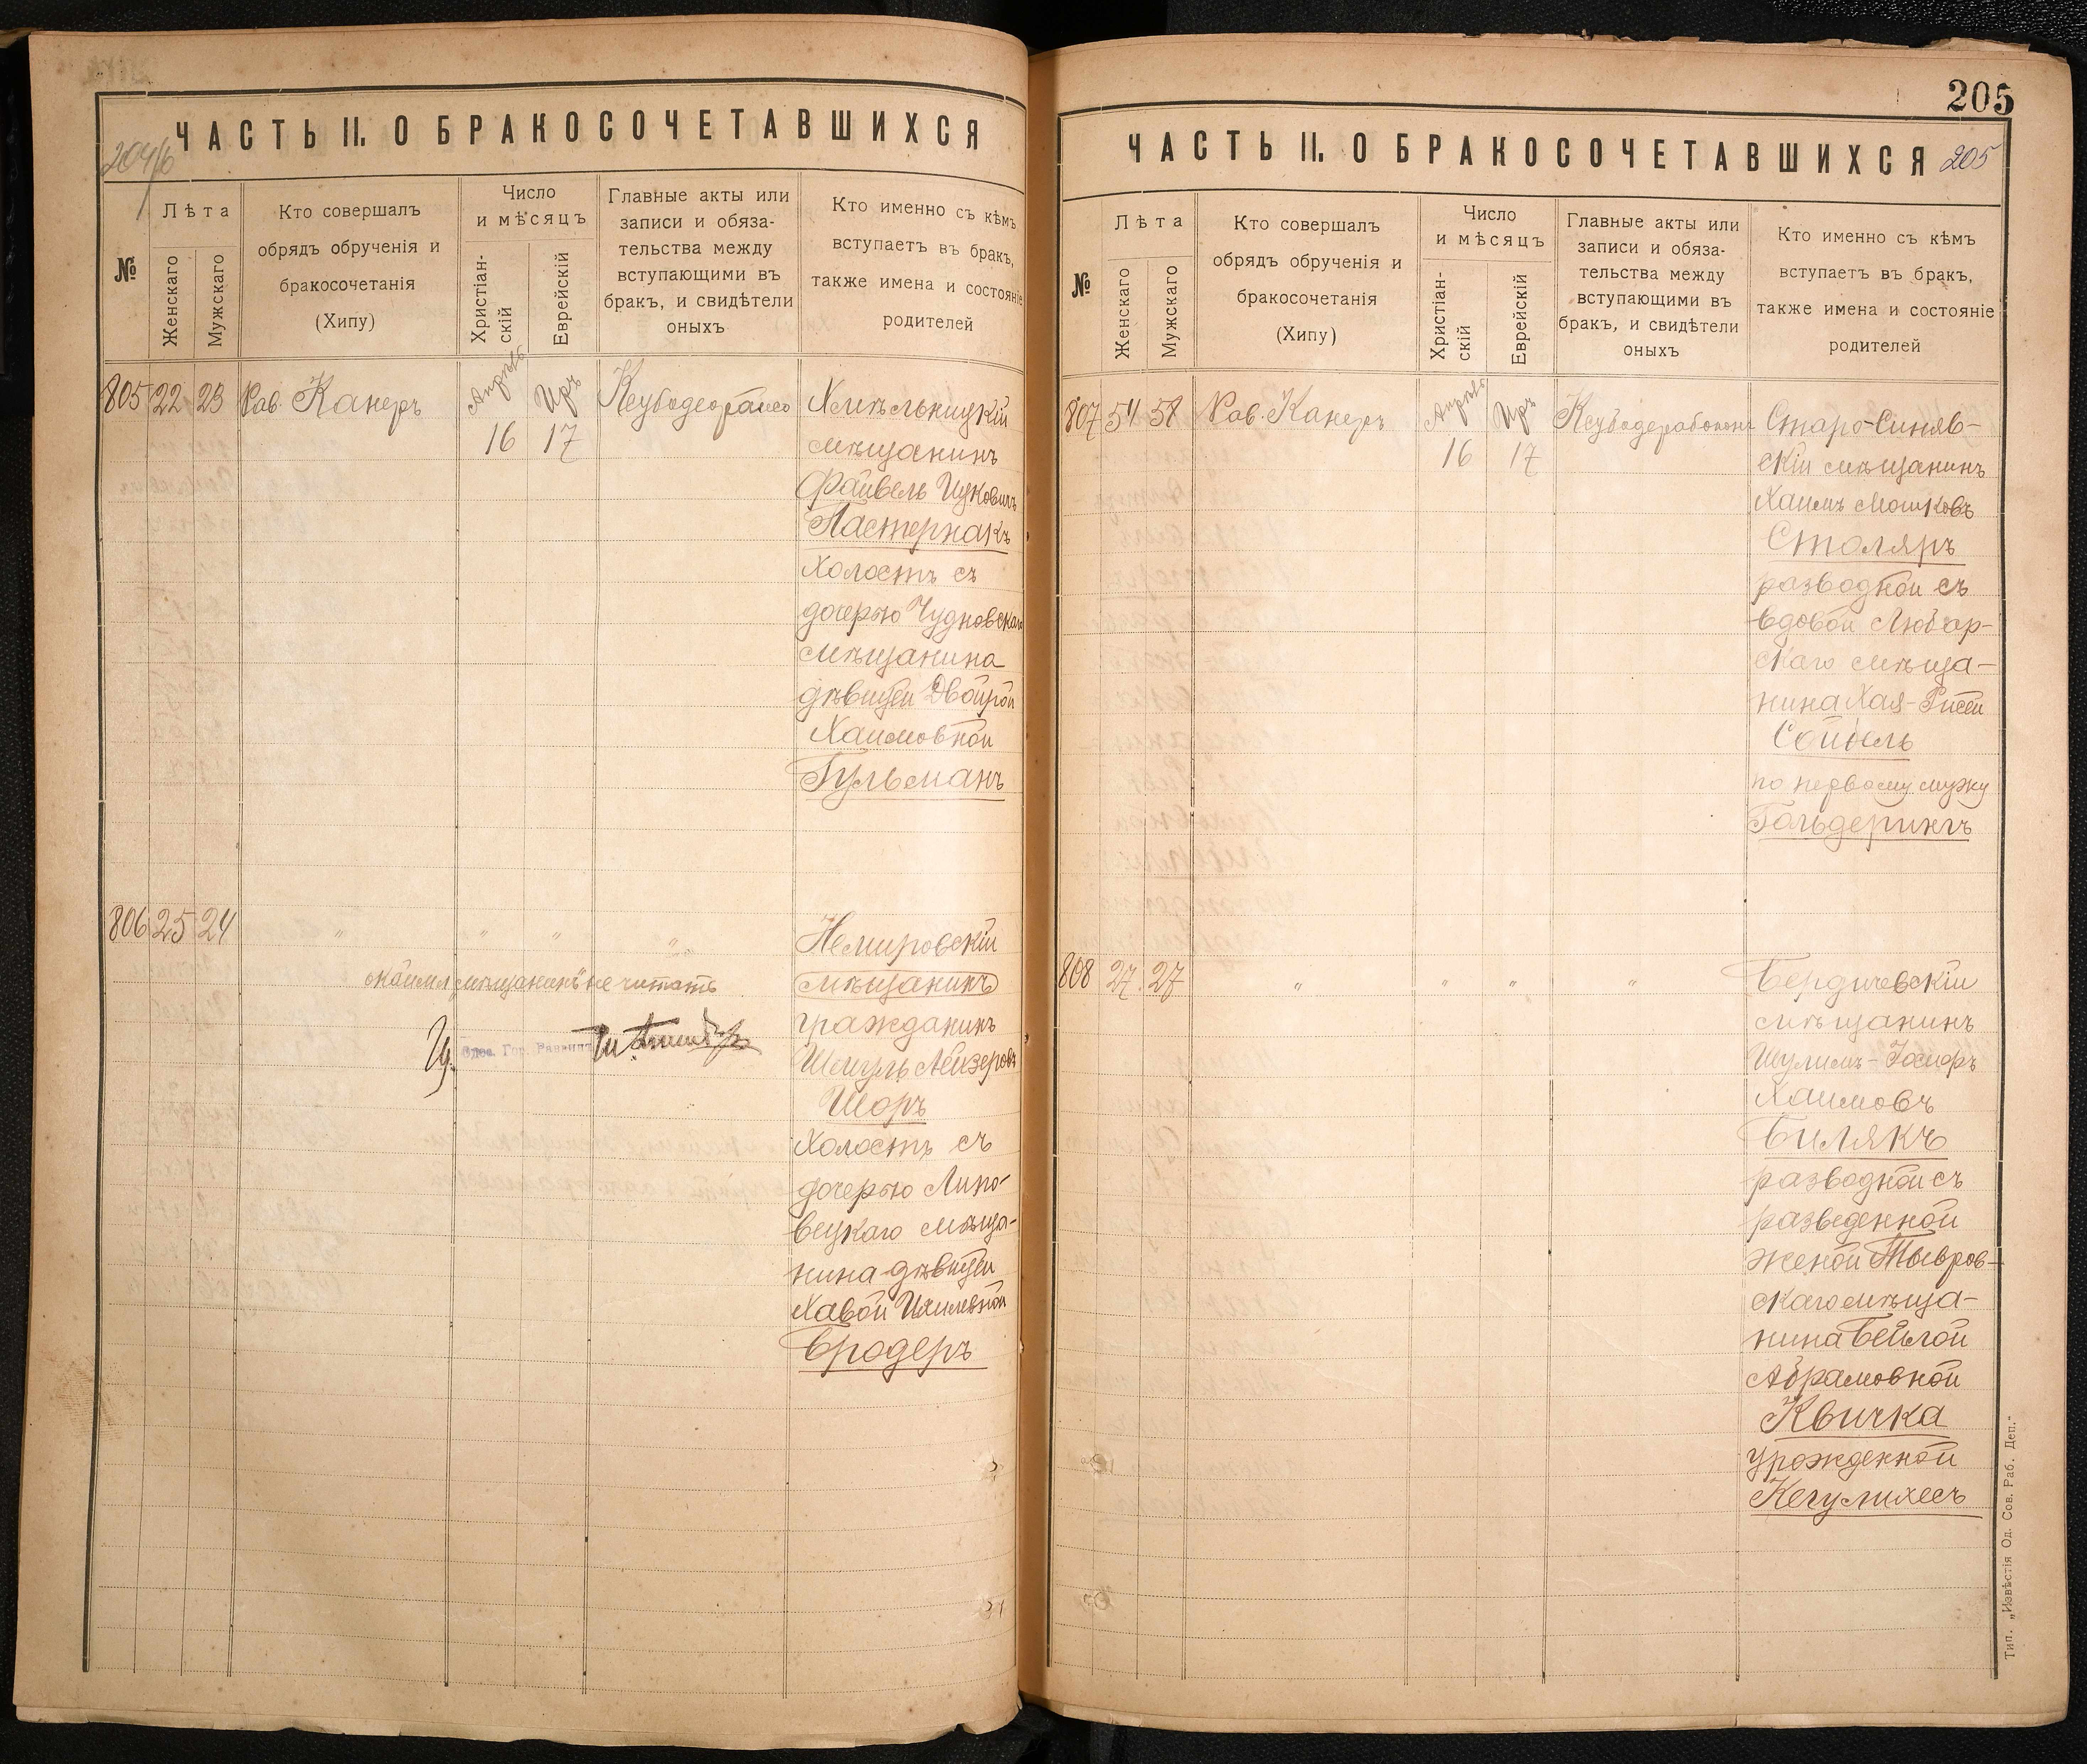 ЧАСТЬ II. О БРАКОСОЧЕТАВШИХСЯ
204/б
№
Лѣта
Женскаго
Мужскаго
Кто совершалъ
обрядъ обрученія и
бракосочетанія
(Хипу)
Число
и мѣсяцъ
Христіан-
скій
Еврейскій
Главные акты или
записи и обяза-
тельства между
вступающими въ
бракъ, и свидѣтели
оныхъ
Кто именно съ кѣмъ
вступаетъ въ бракъ,
также имена и состояніе
родителей
805 22 23 Рав. Канеръ
Апрѣль Иръ
16 17
Хмѣльницкій
мѣщанинъ
Файвель Ицковичъ
Пастернакъ
холостъ съ
дочерью Чудновскаго
мѣщанина
дѣвицей Двойрой
Хаимовной
Гульманъ
806 25 24 " " " "
Немировскій
мѣщанинъ
гражданинъ
Шмуль Лейзеровъ
Шоръ
холостъ съ
дочерью Липо-
вецкаго мѣща-
нина дѣвицей
Хавой
Бродеръ
мѣщанинъ" не читать
Одес. Гор. Раввинъ
205
ЧАСТЬ II. О БРАКОСОЧЕТАВШИХСЯ
205
№
Лѣта
Женскаго
Мужскаго
Кто совершалъ
обрядъ обрученія и
бракосочетанія
(Хипу)
Число
и мѣсяцъ
Христіан-
скій
Еврейскій
Главные акты или
записи и обяза-
тельства между
вступающими въ
бракъ, и свидѣтели
оныхъ
Кто именно съ кѣмъ
вступаетъ въ бракъ,
также имена и состояніе
родителей
807 54 58 Рав. Канеръ
Апрѣль Иръ
16 17
Старо-Синяв-
скій мѣщанинъ
Хаимъ Мошковъ
Столяръ
разводной съ
вдовой Любар-
скаго мѣща-
нина Хая-
по первому мужу
Гольдерингъ
808 27 27 " " " "
Бердичевскій
мѣщанинъ
Шулимъ-
Хаимовъ
Билякъ
разводной съ
разведенной
женой Тывров-
скаго мѣща-
нина Бейлой
Абрамовной
Квичка
урожденной
Кегулихесъ
Тип. „Извѣстія Од. Сов. Раб. Деп."